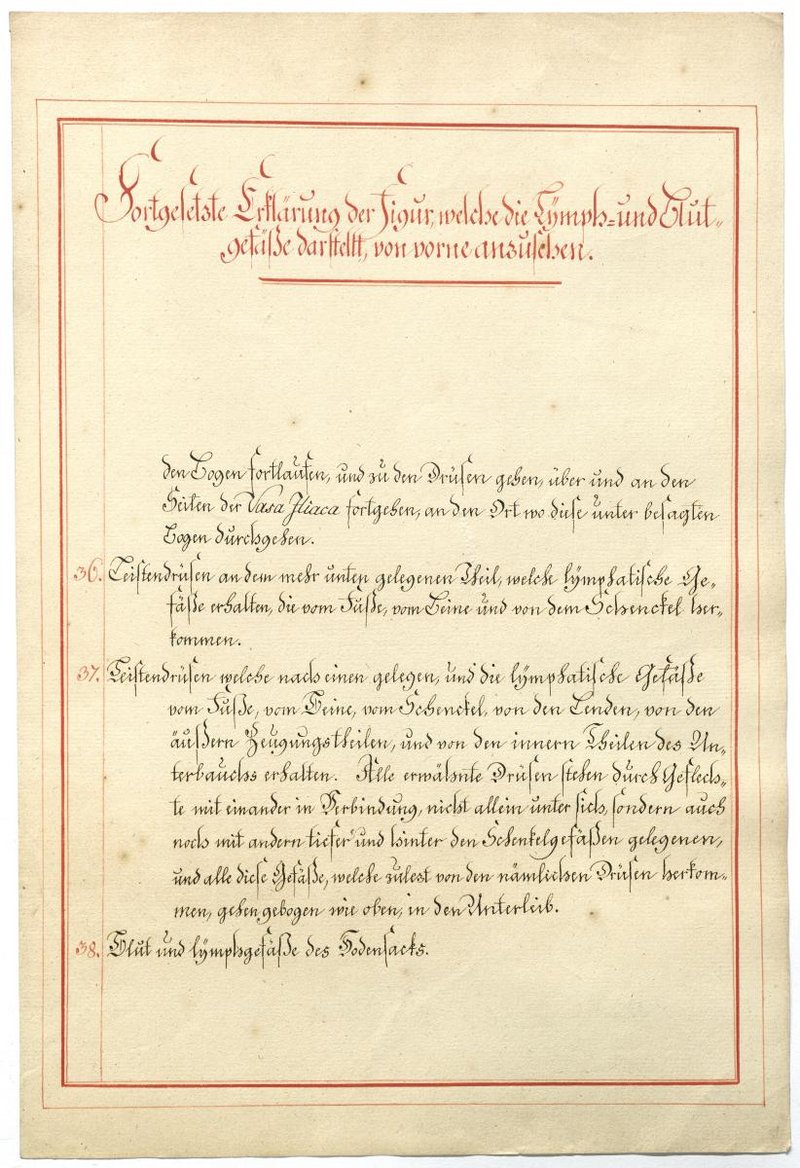 Fortgesetzte Erklärung der Figur, welche die Lymph- und Blut-
gefäße darstellt, von vorne anzusehen.
den Bogen fortlaufen, und zu den Drüsen gehen, über und an den
Seiten der Vasa Iliaca fortgehen, an den Ort wo diese unter besagten
Bogen durchgehen.
36. Leistendrüsen an dem mehr unten gelegenen Theil, welche lymphatische Ge-
fäße erhalten, die vom Fuße, vom Beine und von dem Schenckel her-
kommen.
37. Leistendrüsen welche nach einen gelegen, und die lymphatische Gefäße
vom Fuße, vom Beine, vom Schenckel, von den Lenden, von den
äußern Zeugungstheilen, und von den innern Theilen des Un-
terbauchs erhalten. Alle erwähnte Drüsen stehen durch Geflech-
te mit einander in Verbindung, nicht allein unter sich, sondern auch
noch mit andern tiefer und hinter den Schenkelgefäßen gelegenen,
und alle diese Gefäße, welche zulest von den nämlichen Drüsen herkom-
men, gehen gebogen wie oben, in den Unterleib.
38. Blut und lymphgefäße des Hodensacks.